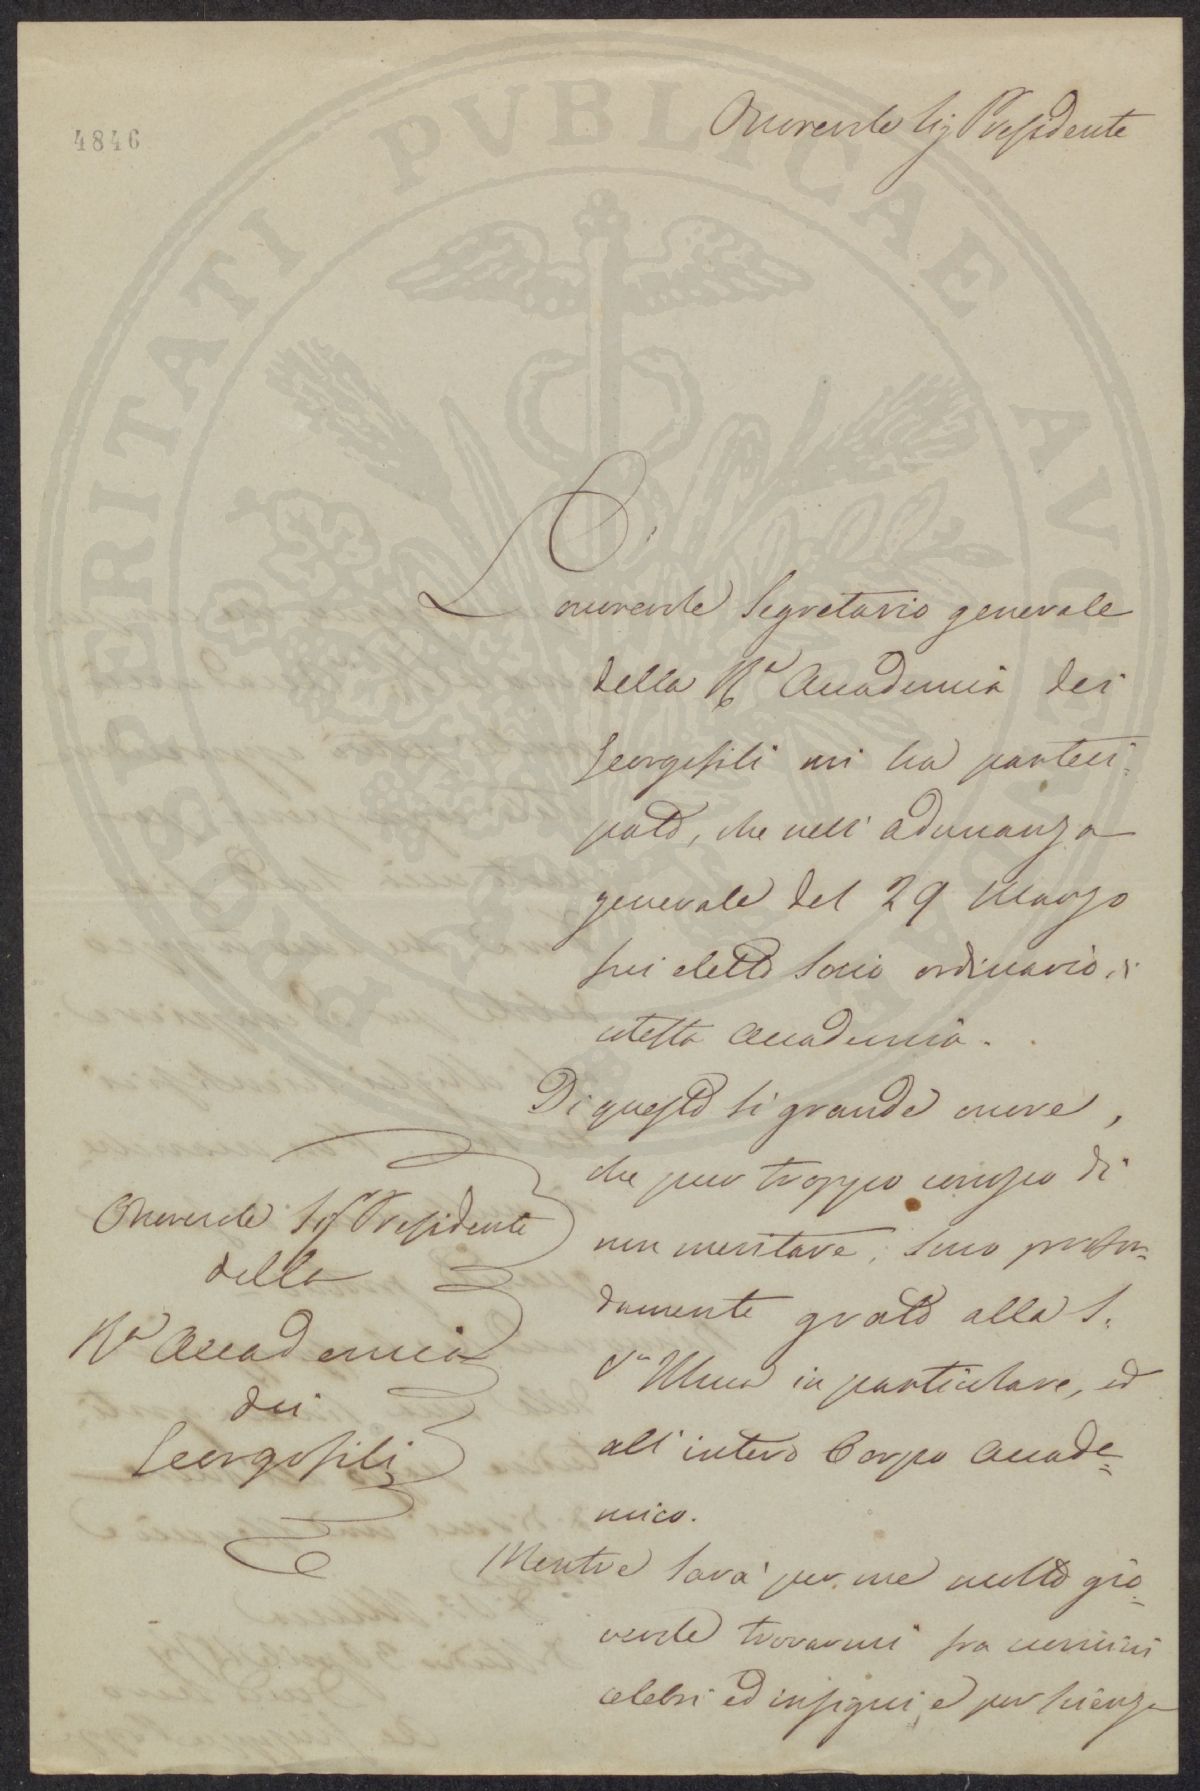 4846
Onorevole Sig Presidente
L' onorevole Segretario generale
della Ra Accademia dei
Georgofili mi ha parteci-
pato, che nell' adunanza
generale del 29 Marzo
fui eletto Socio ordinario di
cotesta Accademia.
Di questo sì grande onore,
che pur troppo conosco di
non meritare, sono profon-
damente grato alla S.
Va Illma in particolare, ed
all' intero Corpo Accade=
mico.
Mentre sarà per me molto gio-
vevole trovarmi fra uomini
celebri ed insigni, e per scienza
Onorevole Sigr Presidente
della
Ra Accademia
dei
Georgofili
PROSPERITATI PVBLICAE AVGENDAE